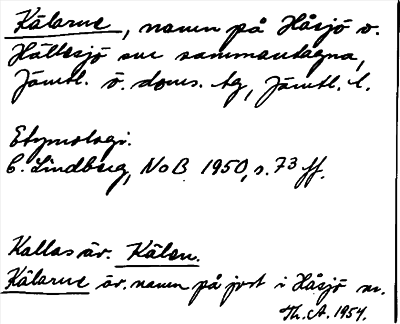 Kälarne, namn på Håsjö o.
Hällesjö snr sammantagna,
Jämtl. ö. doms. tg, Jämtl. l.
Etymologi:
C. Lindberg, NoB 1950, s. 73 ff.
Kallas äv. Kälen.
Kälarne äv. namn på jvst i Håsjö sn.
Th. A. 1954.